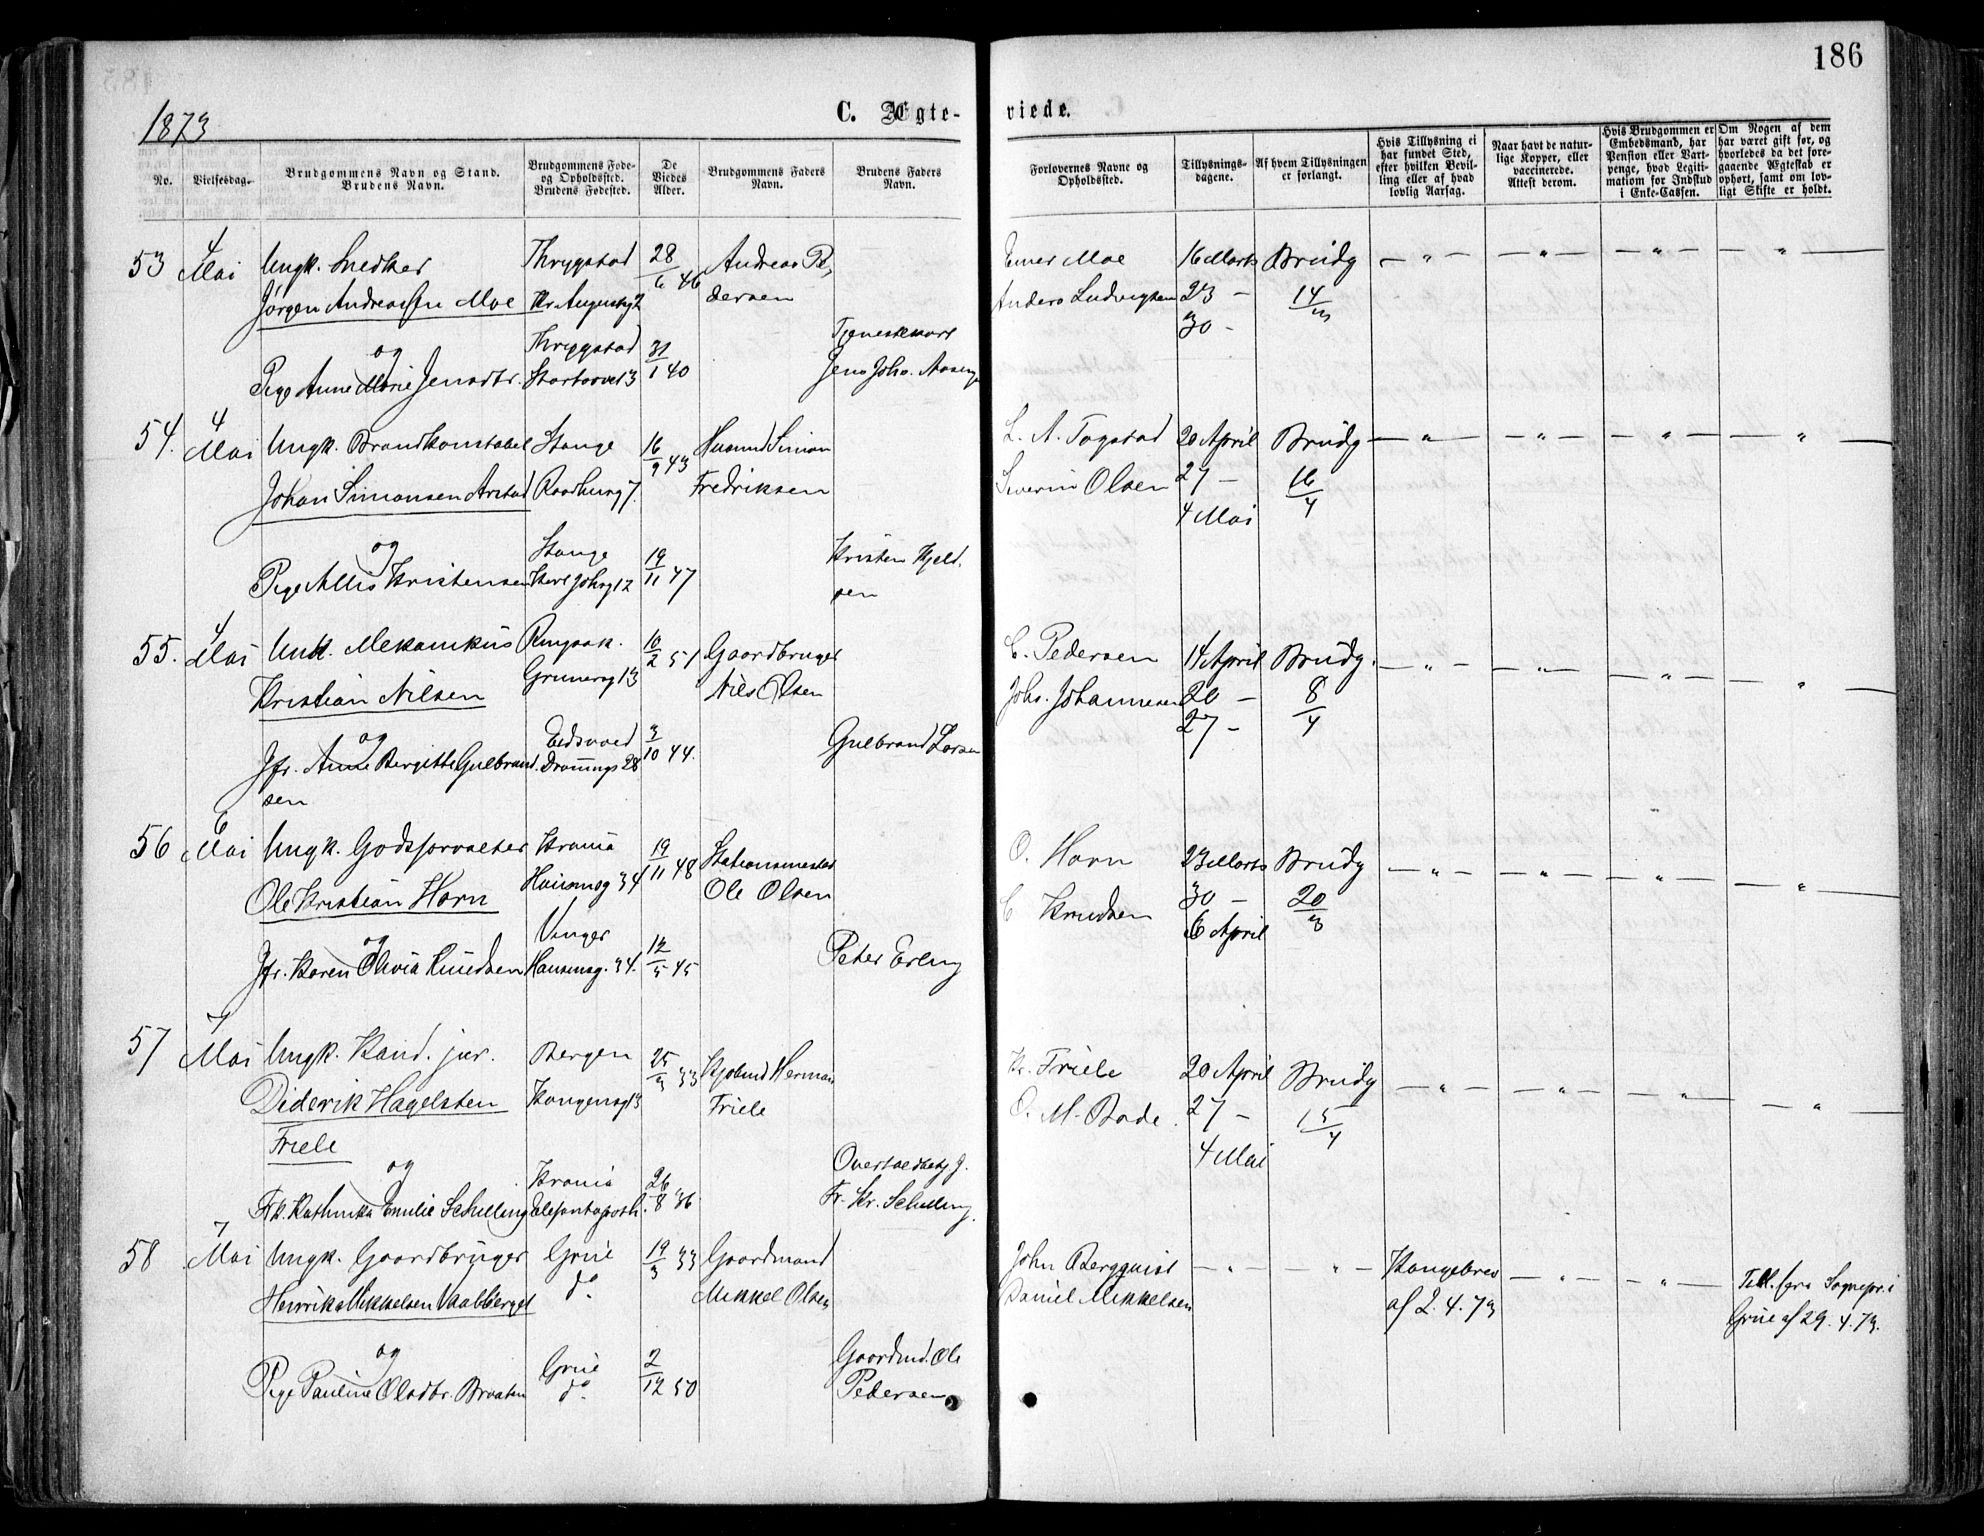 186
1873
C. Ægte-
viede.
No.
Vielsesdag.
Brudgommens Navn og Stand.
Brudens Navn.
Brudgommens Føde-
og Opholdssted.
Brudens Fødested.
De
Viedes
Alder.
Brudgommens Faders
Navn.
Brudens Faders
Navn.
Forlovernes Navne og
Opholdssted.
Tillysnings-
dagene.
Af hvem Tillysningen
er forlangt.
Hvis Tillysning ei
har fundet Sted,
efter hvilken Bevil-
ling eller af hvad
lovlig Aarsag.
Naar havt de natur-
lige Kopper, eller
vaccinerede.
Attest derom.
Hvis Brudgommen er
Embedsmand, har
Pension eller Vart-
penge, hvad Legiti-
mation for Indskud
i Enke-Cassen.
Om Nogen af dem
har været gift før, og
hvorledes da det fore-
gaaende Ægteskab er
ophørt, samt om lov-
ligt Skifte er holdt.
53 4 Mai Ungk. Snedker Thrygstad 28/6 46 Andreas Pe- Moe 16 Marts Brudg — " — — " — — " — — " —
Jørgen Andreassen Moe Kr. Augustg 2 dersen Anders Ludvigsen 23 — 14/3
30 —
og Thrygstad 31/1 40
Pige Anne Marie Jensdtr. Stortorvet 3 Jens Johs.
54. 4 Mai Ungk. Brandkonstabel Stange 16/9 43 Husmd Simon L. A. Togstad 20 April Brudg — " — — " — — " — — " —
Johan Simonsen Arstad Raadhusg 7. Fredriksen Severin Olsen 27 — 16/4
4 Mai
og Stange 19/11 47 Kristen Kjeld-
Pige Kristensen Karl Johsg 12 sen
55. 4 Mai Unk. Mekanikus Ringsak. 10/2 51 Gaardbruger C. Pedersen 14 April Brudg. — " — — " — — " — — " —
Kristian Nilsen Grunersg 13 Nils Olsen Johs. Johannesen 20 — 8/4
27 —
og Eidsvold 3/10 44. Gulbrand Larsen
Jfr. Anne Bergitte Gulbrand- 28
sen
56 6 Mai Ungk. Godsforvalter Krania 19/11 48 Stationsmester O. Horn 23 Marts Brudg — " — — " — — " — — " —
Ole Kristian Horn Hausmsg 34 Ole Olsen C Knudsen 30 — 20/3
6 April
og Vinger 12/5 45
Jfr. Karen Olivia Knudsen Hausmsg. 34. Peter Erling
57 7 Mai Ungk. Kand. jur. Bergen 25/3 33 Kjøbmd Herman Kr. Friele 20 April Brudg — " — — " — — " — — " —
Diderik Hagelsten Kongensg 13 Friele O. M. Bade. 27 — 15/4
Friele 4 Mai
og Krania 26/8 36
Frk. Kathinka Emilie Schilling Fr. Kr. Schilling.
58 7 Mai Ungk. Gaardbruger Grue 19/3 33 Gaardmand John Bergqvist — " — — " — Kongebrev — " — — " — Till. fra Sognepr. i
Henrik Mikkelsen Vaalberget do Mikkel Olsen Daniel Mikkelsen af 2. 4. 73 Grue af 29. 4. 73.
og Grue 2/12 50 Gaardmd. Ole
Pige Pauline Olsdtr. Braaten do Pedersen